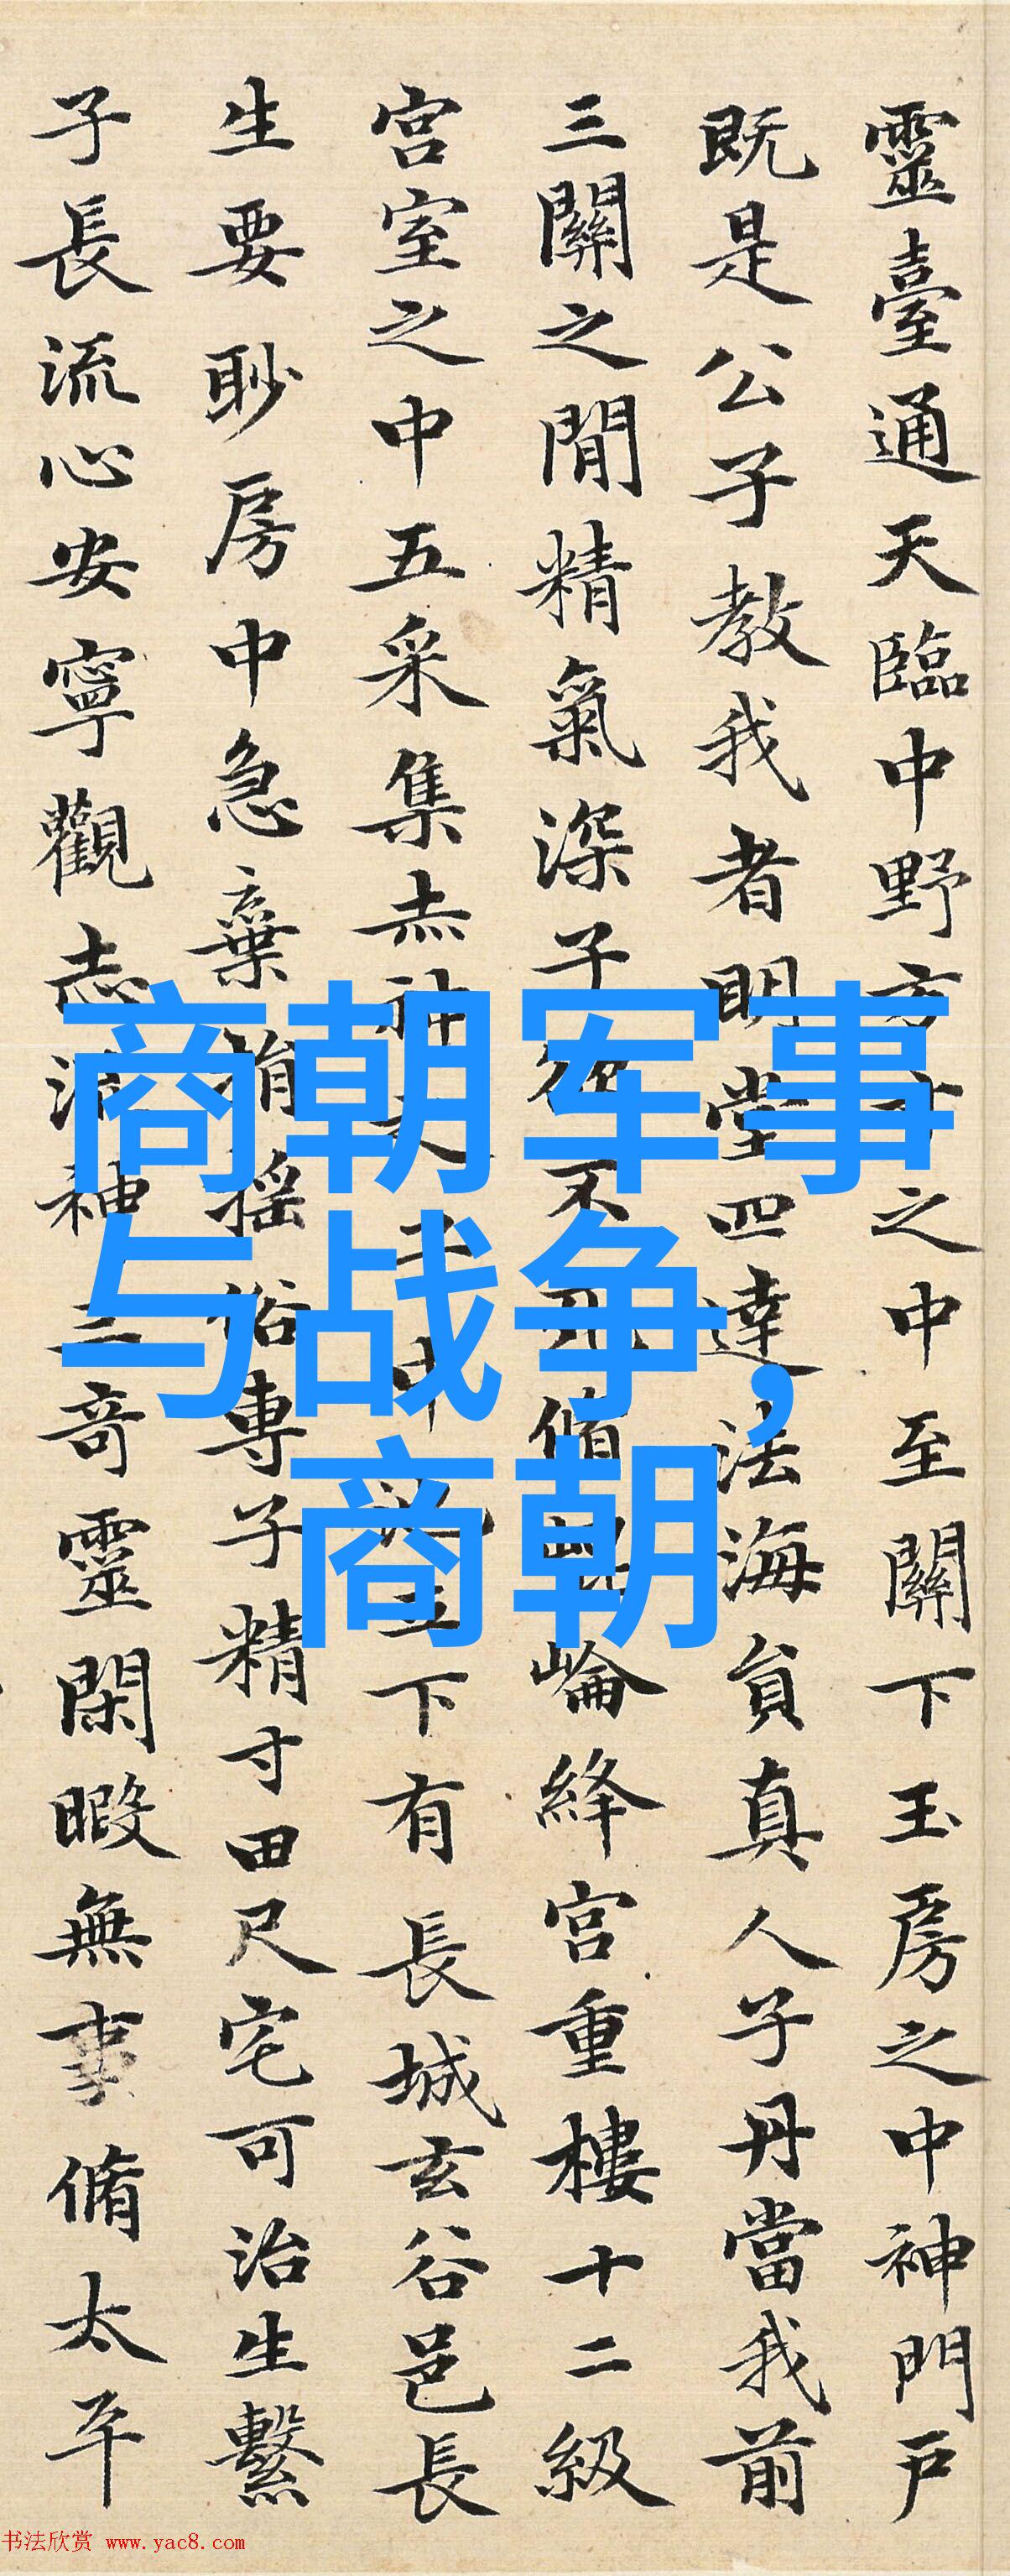 靈臺通天臨中野方寸之中至關下玉房之中神門戶
既是公子教我者明堂四達法海員真人子丹當我前
三關之閒精氣深子欲不死脩崑崙絳宮重樓十二級
宮室之中五采集赤神之子中池立下有長城玄谷邑長
生要眇房中急棄捐搖俗專子精寸田尺宅可治生繫
子長流心安寧觀志流神三奇靈閑暇無事脩太平
商朝军事
与战争,
商朝
书法欣赏 www.yac8.com